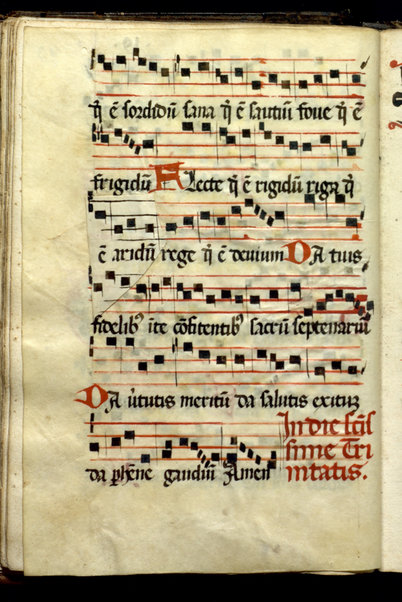 q̄ ē sordidū sana q̄ ē sautiū foue q̄ ē
frigidū Flecte q̄ ē rigidū riga q̄
ē aridū rege q̄ ē deuium DA tuis
fidelibꝰ ī te cōfitentibꝰ sacrū septenariū
DA ùtutis meritū da salutis exitū
da ꝑhēne gaudiū Amen
In die scīs
sime Tri
nitatis.